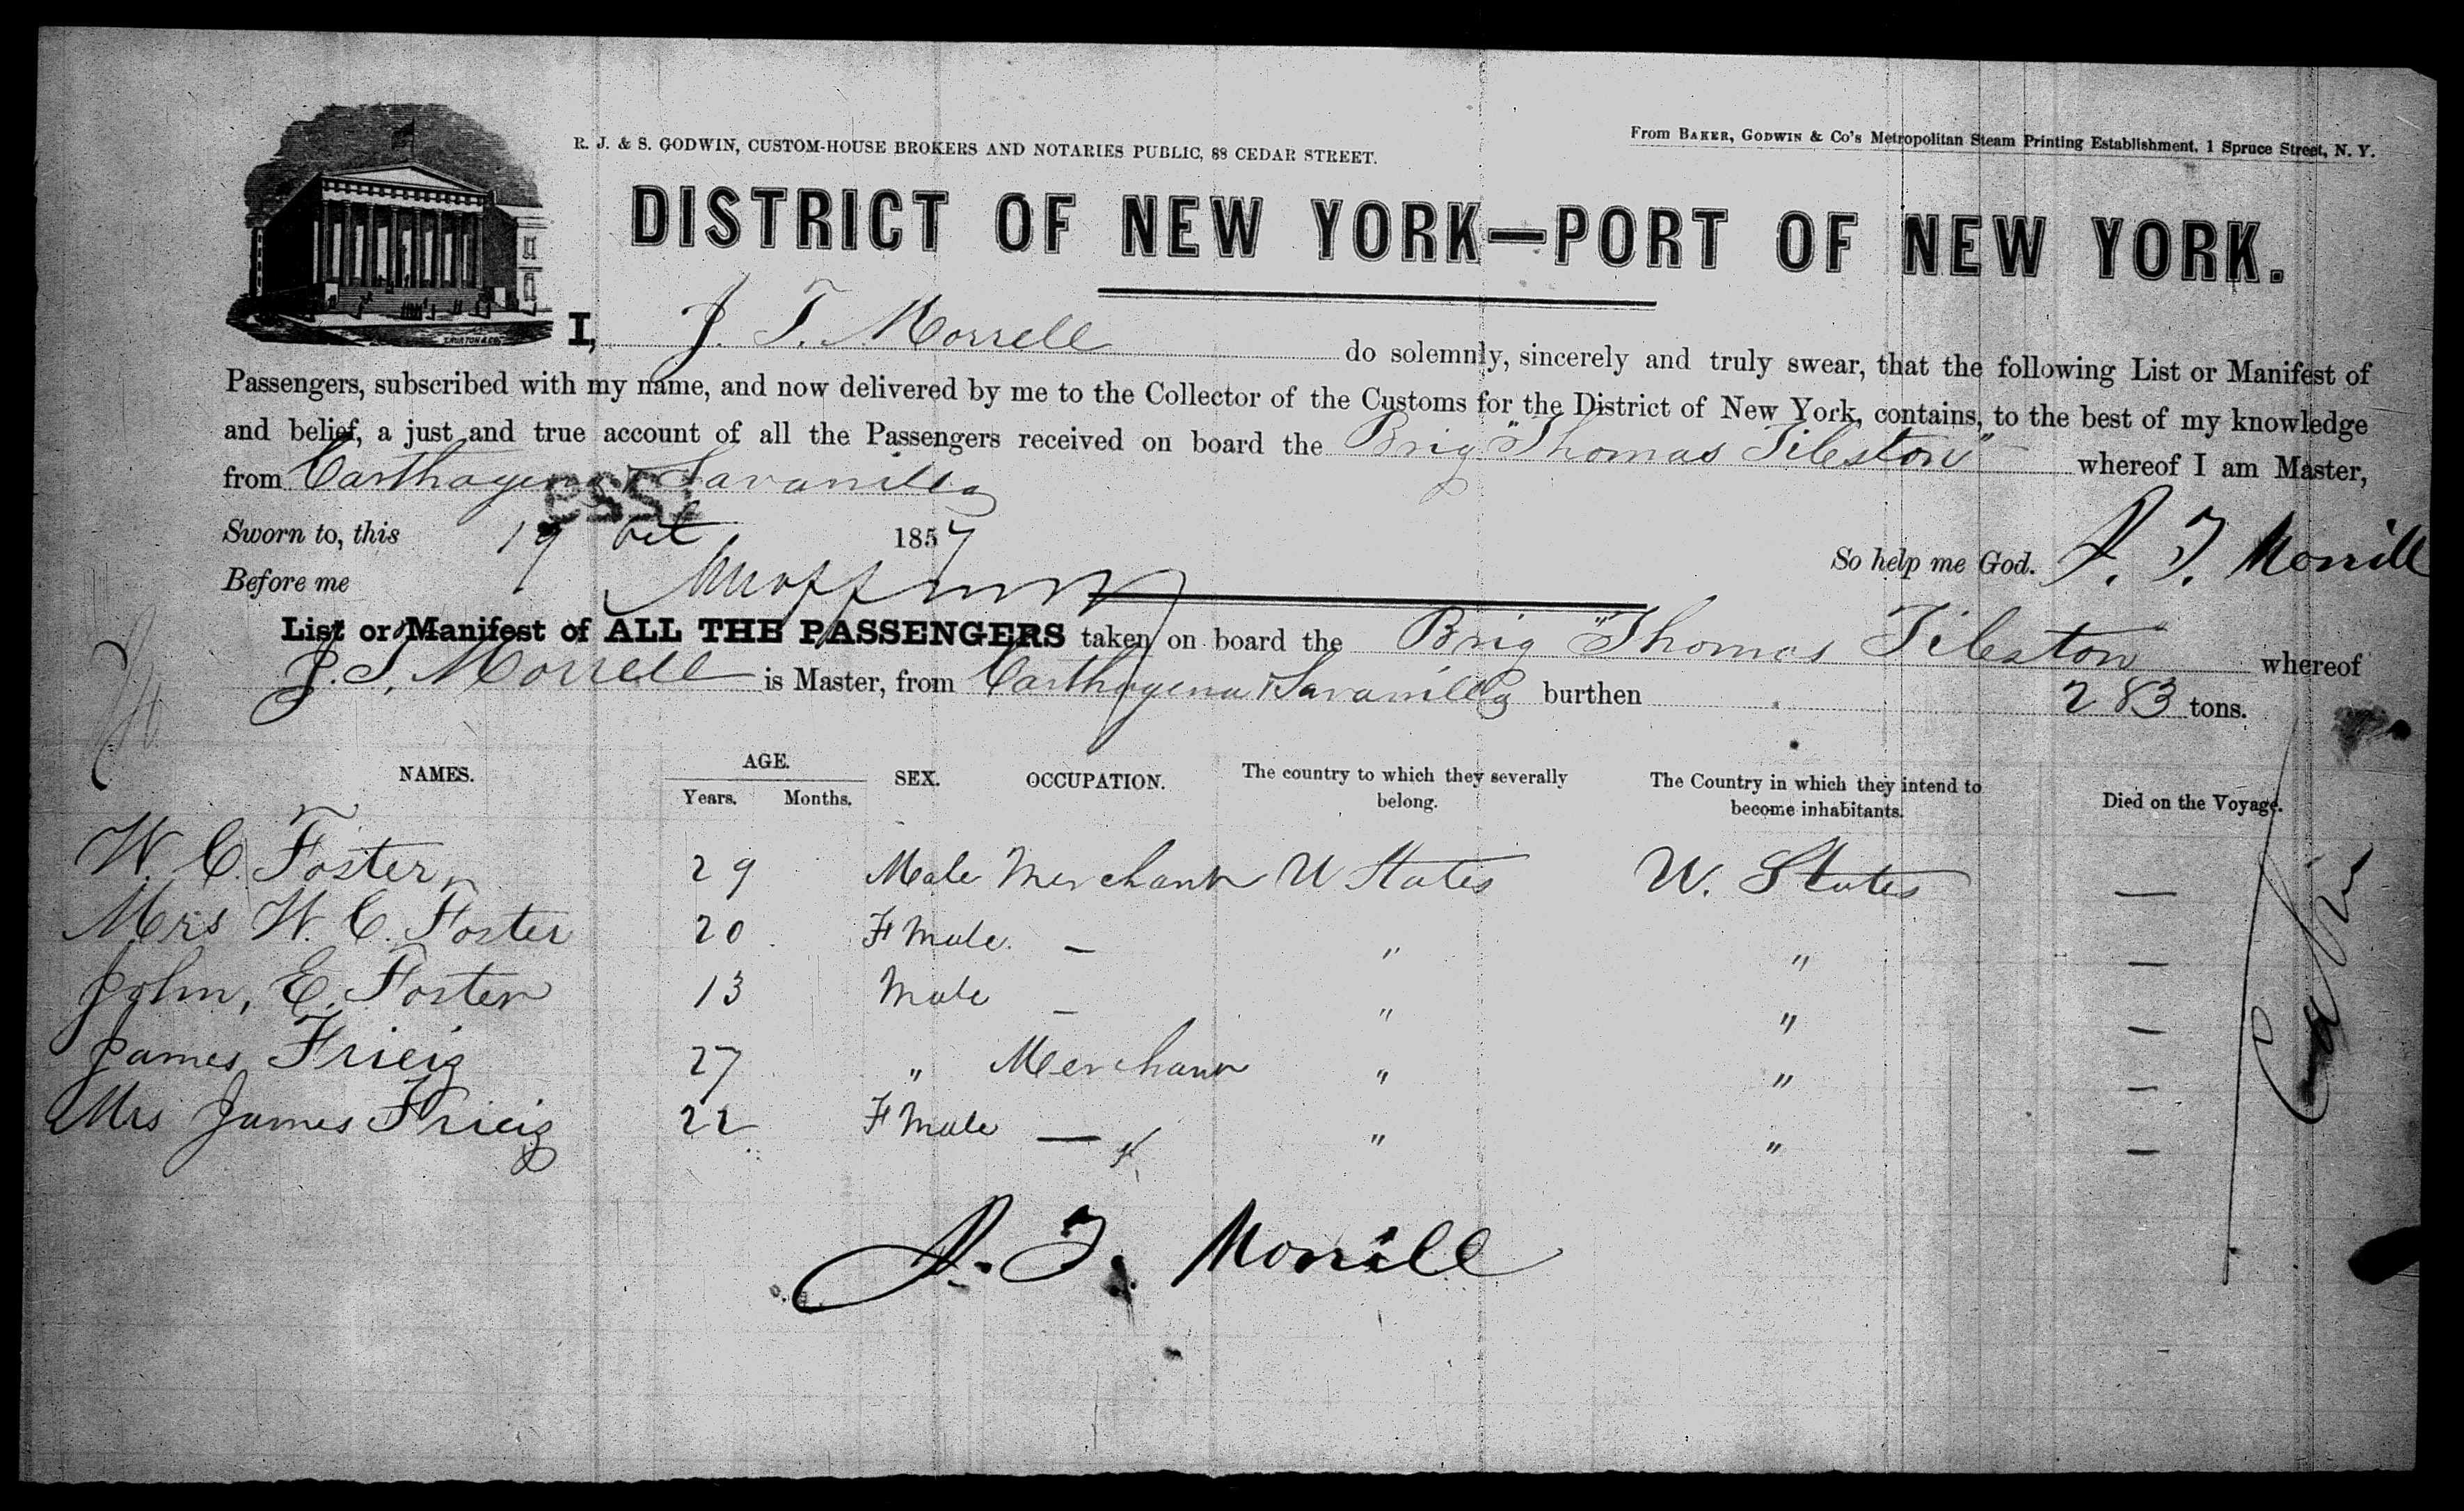 R. J. & S. GODWIN, CUSTOM-HOUSE BROKERS AND NOTARIES PUBLIC, 88 CEDAR STREET.
From BAKER, GODWIN & Co's Metropolitan Steam Printing Establishment, 1 Spruce Street, N. Y.
DISTRICT OF NEW YORK—PORT OF NEW YORK.
I, J. T. Morrell do solemnly, sincerely and truly swear, that the following List or Manifest of
Passengers, subscribed with my name, and now delivered by me to the Collector of the Customs for the District of New York, contains, to the best of my knowledge
and belief, a just and true account of all the Passengers received on board the Brig "Thomas Tileston" whereof I am Master,
from Carthagena & Savanilla
Sworn to, this 19 Oct 1857
So help me God. J. T. Morrill
Before me
List or Manifest of ALL THE PASSENGERS taken on board the Brig "Thomas Tileston whereof
J. T. Morrell is Master, from Carthagena & Savanilla burthen 283 tons.
NAMES. AGE. Years. Months. SEX. OCCUPATION. The country to which they severally belong. The Country in which they intend to become inhabitants. Died on the Voyage.
W. C. Foster 29 Male Merchant U States U. States —
Mrs W. C. Foster 20 F Male. — " " —
John, E. Foster 13 Male — " " —
James Frieiz 27 " Merchant " " —
Mrs James Frieiz 22 F Male — " " —
J. T. Morrill